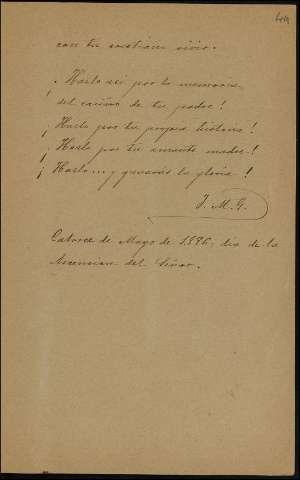 49
con tu cristiano vivir.
¡Hazlo así por la memoria
del cariño de tu padre!
¡Hazlo por tu propia historia!
¡Hazlo por tu amante madre!
¡Hazlo... y ganarás la gloria!
J. M. G.
Catorce de Mayo de 1896, día de la
Ascension del Señor.